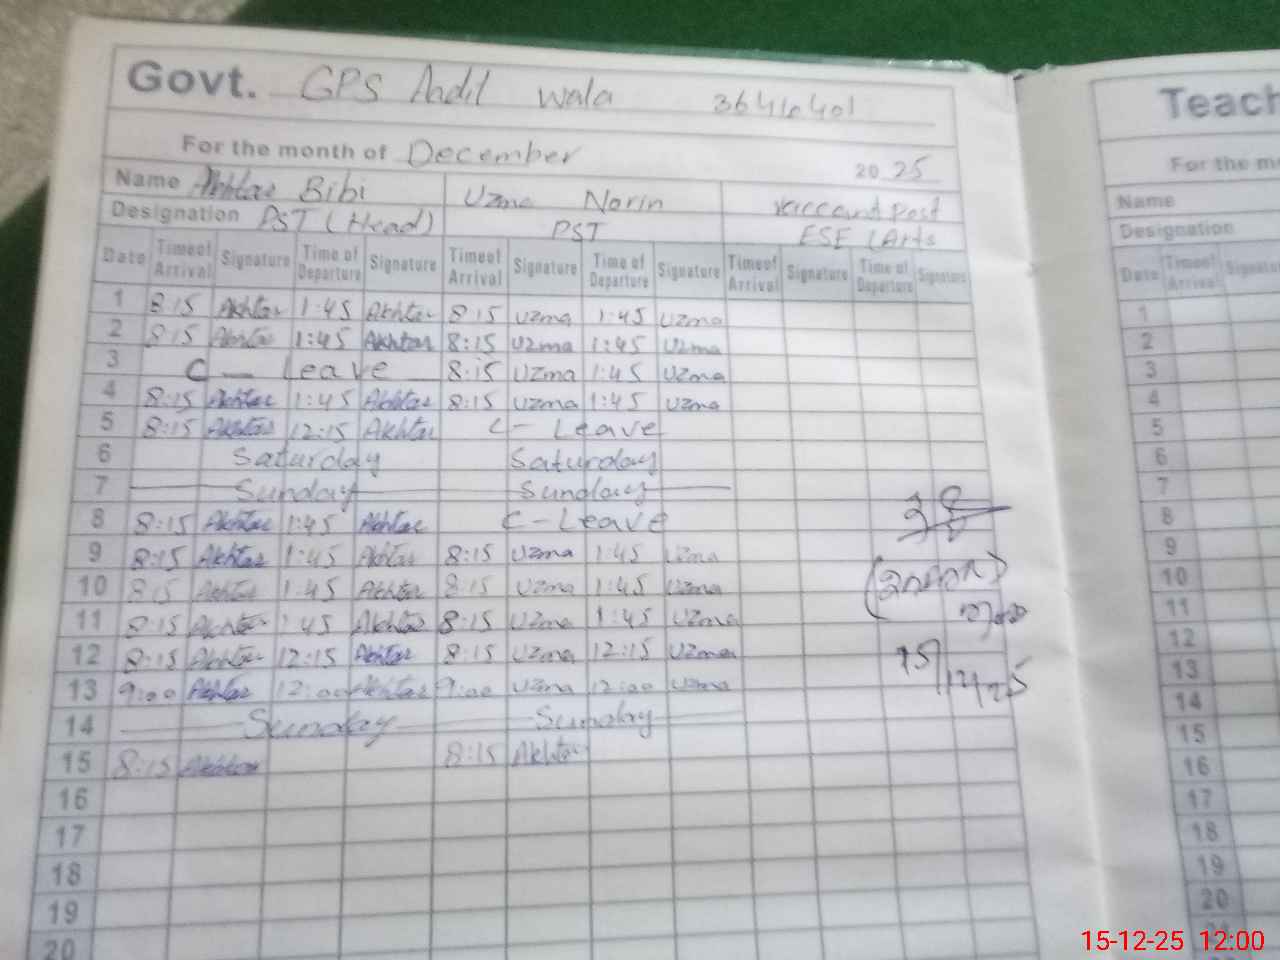 Govt. GPS Aadil wala
For the month of December 2025
Name Akhtar Bibi Uzma Norin
Designation PST (Head) PST ESE (Arts
Date Time of Arrival Signature Time of Departure Signature Time of Arrival Signature Time of Departure Signature Time of Arrival Signature Time of Departure Signature
1 8:15 Akhtar 1:45 Akhtar 8:15 Uzma 1:45 Uzma
2 8:15 Akhtar 1:45 Akhtar 8:15 Uzma 1:45 Uzma
3 C - Leave 8:15 Uzma 1:45 Uzma
4 8:15 Akhtar 1:45 Akhtar 8:15 Uzma 1:45 Uzma
5 8:15 Akhtar 12:15 Akhtar C - Leave
6 Saturday Saturday
7 Sunday Sunday
8 8:15 Akhtar 1:45 Akhtar C - Leave
9 8:15 Akhtar 1:45 Akhtar 8:15 Uzma 1:45 Uzma
10 8:15 Akhtar 1:45 Akhtar 8:15 Uzma 1:45 Uzma
11 8:15 Akhtar 1:45 Akhtar 8:15 Uzma 1:45 Uzma
12 8:15 Akhtar 12:15 Akhtar 8:15 Uzma 12:15 Uzma
13 9:00 Akhtar 12:00 Akhtar 9:00 Uzma 12:00 Uzma
14 Sunday Sunday
15 8:15 Akhtar 8:15 Akhtar
16
17
18
19
20
Teach
For the m
Name
Designation
Date Time of Arrival Signatu
1
2
3
4
5
6
7
8
9
10
11
12
13
14
15
16
17
18
19
20
15-12-25 12:00